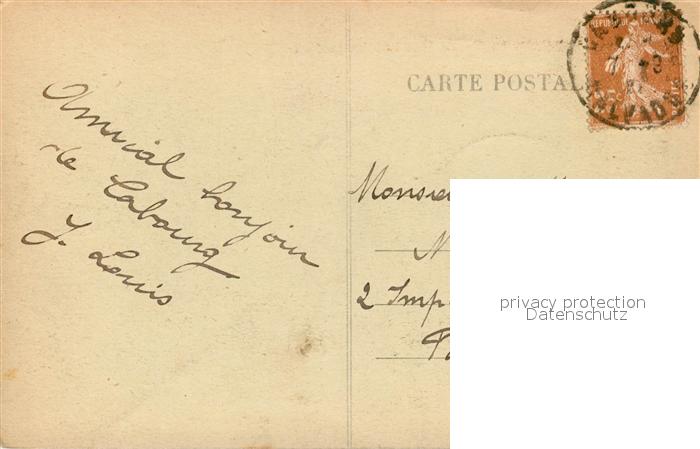 Amical bonjour
de Cabourg
J. Louis
CARTE POSTALE
REPUBLIQUE FRANÇAISE
CALVADOS
Monsieur
2 Imp
privacy protection
Datenschutz